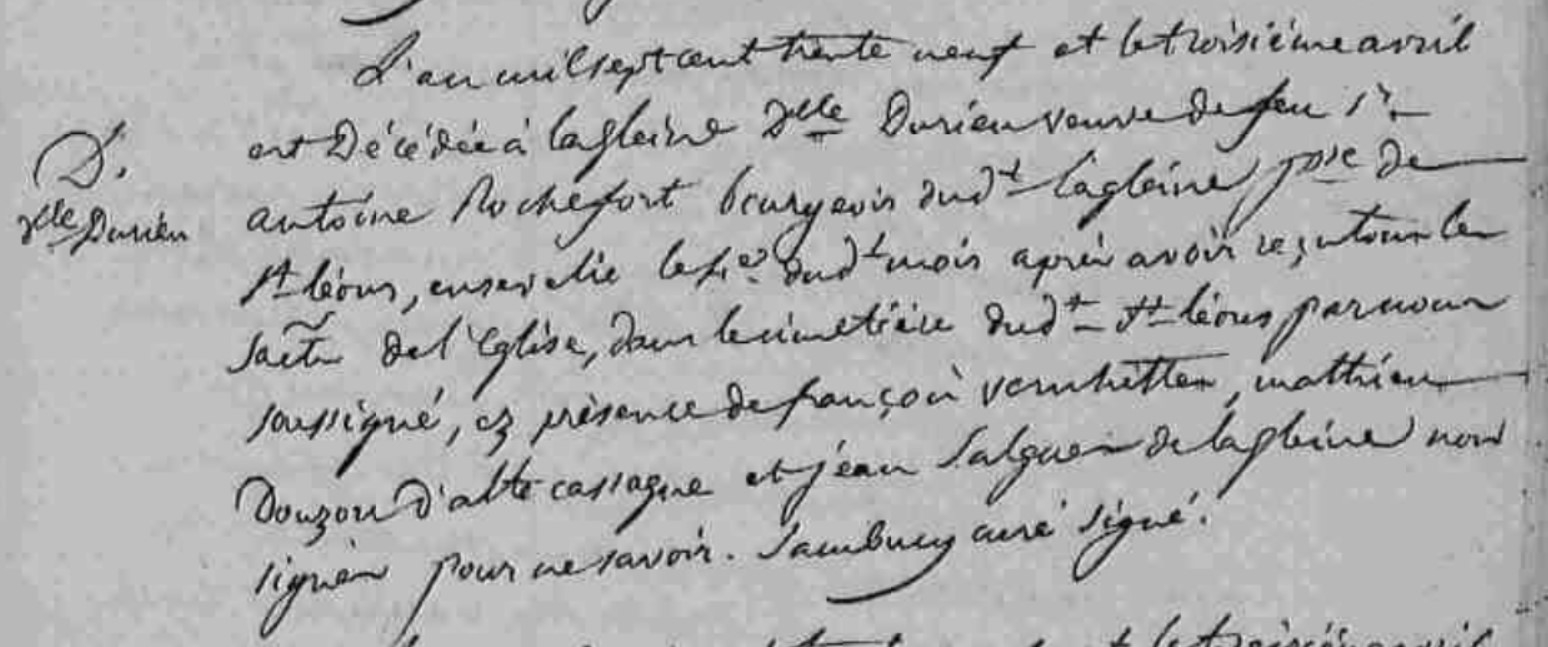 L'an mil sept cent trente neuf et le troisième avril
D. est Décédée à lagleine Dlle Durieu veuve de feu Sr
Dlle Durieu antoine Rochefort bourgeois dudt lagleine psse de
St léons, ensevelie le 4e dudt mois après avoir reçu tous les
sacts de l'Eglise, dans le cimetière dudt St léons par nous
soussigné, ez présence de françois vernhettes, matthieu
Douzou d'alte cassagne et jean Salgues de lagleine non
signés pour ne savoir. Sambucy curé signé.